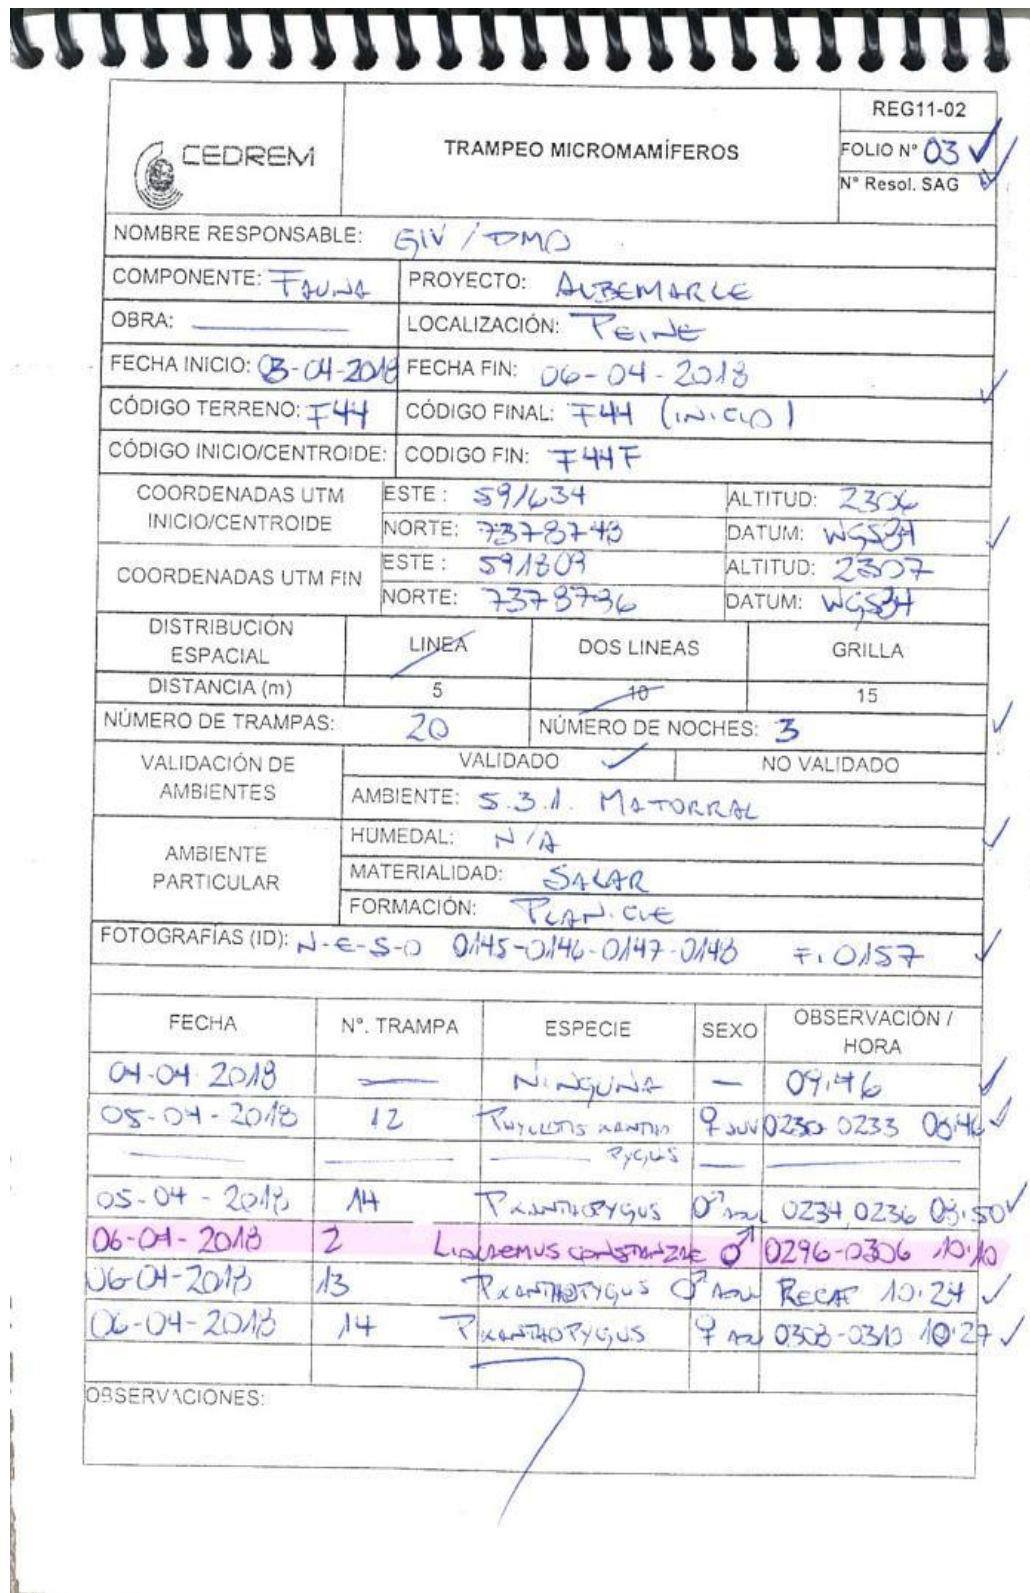 REG11-02
CEDREM
TRAMPEO MICROMAMÍFEROS
FOLIO N° 03
N° Resol. SAG
NOMBRE RESPONSABLE: GIV / DMO
COMPONENTE: FAUNA PROYECTO: ALBEMARLE
OBRA: LOCALIZACIÓN: PEINE
FECHA INICIO: 03-04-2018 FECHA FIN: 06-04-2018
CÓDIGO TERRENO: F44 CÓDIGO FINAL: F44 (INICIO)
CÓDIGO INICIO/CENTROIDE: CODIGO FIN: F44F
COORDENADAS UTM INICIO/CENTROIDE
ESTE: 591634 ALTITUD: 2306
NORTE: 7378743 DATUM: WGS84
COORDENADAS UTM FIN
ESTE: 591809 ALTITUD: 2307
NORTE: 7378796 DATUM: WGS84
DISTRIBUCIÓN ESPACIAL LINEA DOS LINEAS GRILLA
DISTANCIA (m) 5 10 15
NÚMERO DE TRAMPAS: 20 NÚMERO DE NOCHES: 3
VALIDACIÓN DE AMBIENTES VALIDADO NO VALIDADO
AMBIENTE: 5.3.1. MATORRAL
AMBIENTE PARTICULAR
HUMEDAL: N/A
MATERIALIDAD: SALAR
FORMACIÓN: PLANICIE
FOTOGRAFÍAS (ID): N-E-S-O 0145-0146-0147-0148 F: 0157
FECHA N°. TRAMPA ESPECIE SEXO OBSERVACIÓN / HORA
04-04-2018 — NINGUNA — 09:46
05-04-2018 12 PHYLLOTIS XANTHO ♀ JUV 0230-0233 08:46
PYGUS
05-04-2018 14 P XANTHOPYGUS ♂ 0234,0236 08:50
06-04-2018 2 LIOLAEMUS CONSTANZAE ♂ 0296-0306 10:10
06-04-2018 13 P XANTHOPYGUS ♂ RECAP 10:24
06-04-2018 14 P XANTHOPYGUS ♀ 0308-0310 10:27
OBSERVACIONES: